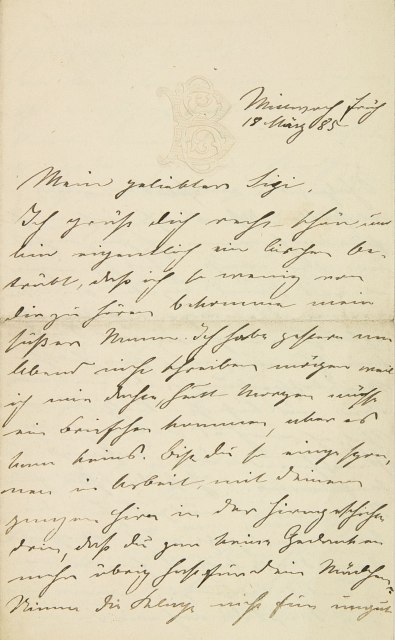 Mittwoch früh
18 März 85
Mein geliebter Sigi,
Ich grüße dich recht schön und
bin eigentlich ein bischen be-
trübt, daß ich so wenig von
dir zu hören bekomme mein
süßer Mann. Ich habe gestern
Abend nicht schreiben mögen weil
ich mir dachte, heute Morgen müßte
ein Briefchen kommen, aber es
kam keins. Bist du so eingespon-
nen in Arbeit, mit deinem
ganzen Hirn in der Hirngeschichte
drin, daß du gar keine Gedanken
mehr übrig hast für dein Mädchen?
Nimm die Klage nicht für ungut